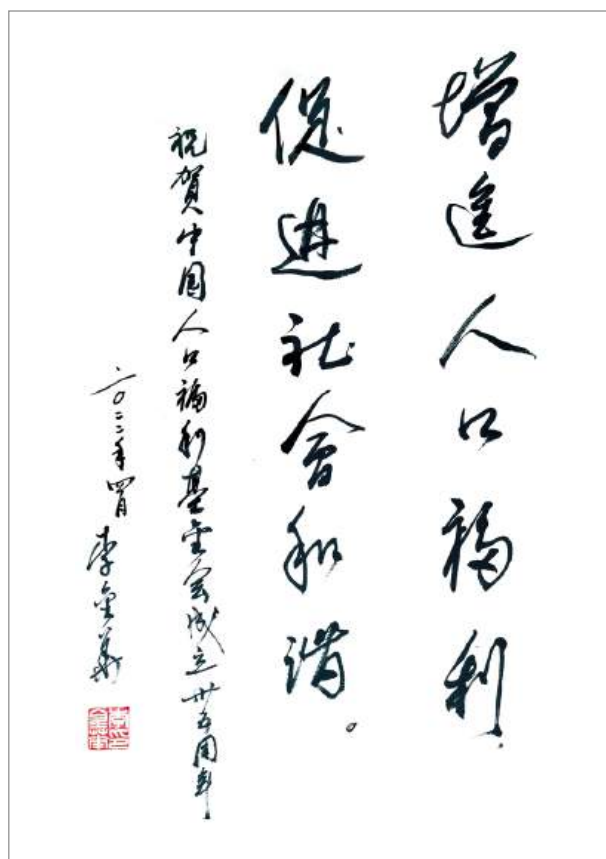 增進人口福利
促进社會和谐。
祝賀中国人口福利基金会成立卅五周年
二〇二二年四月 李金華